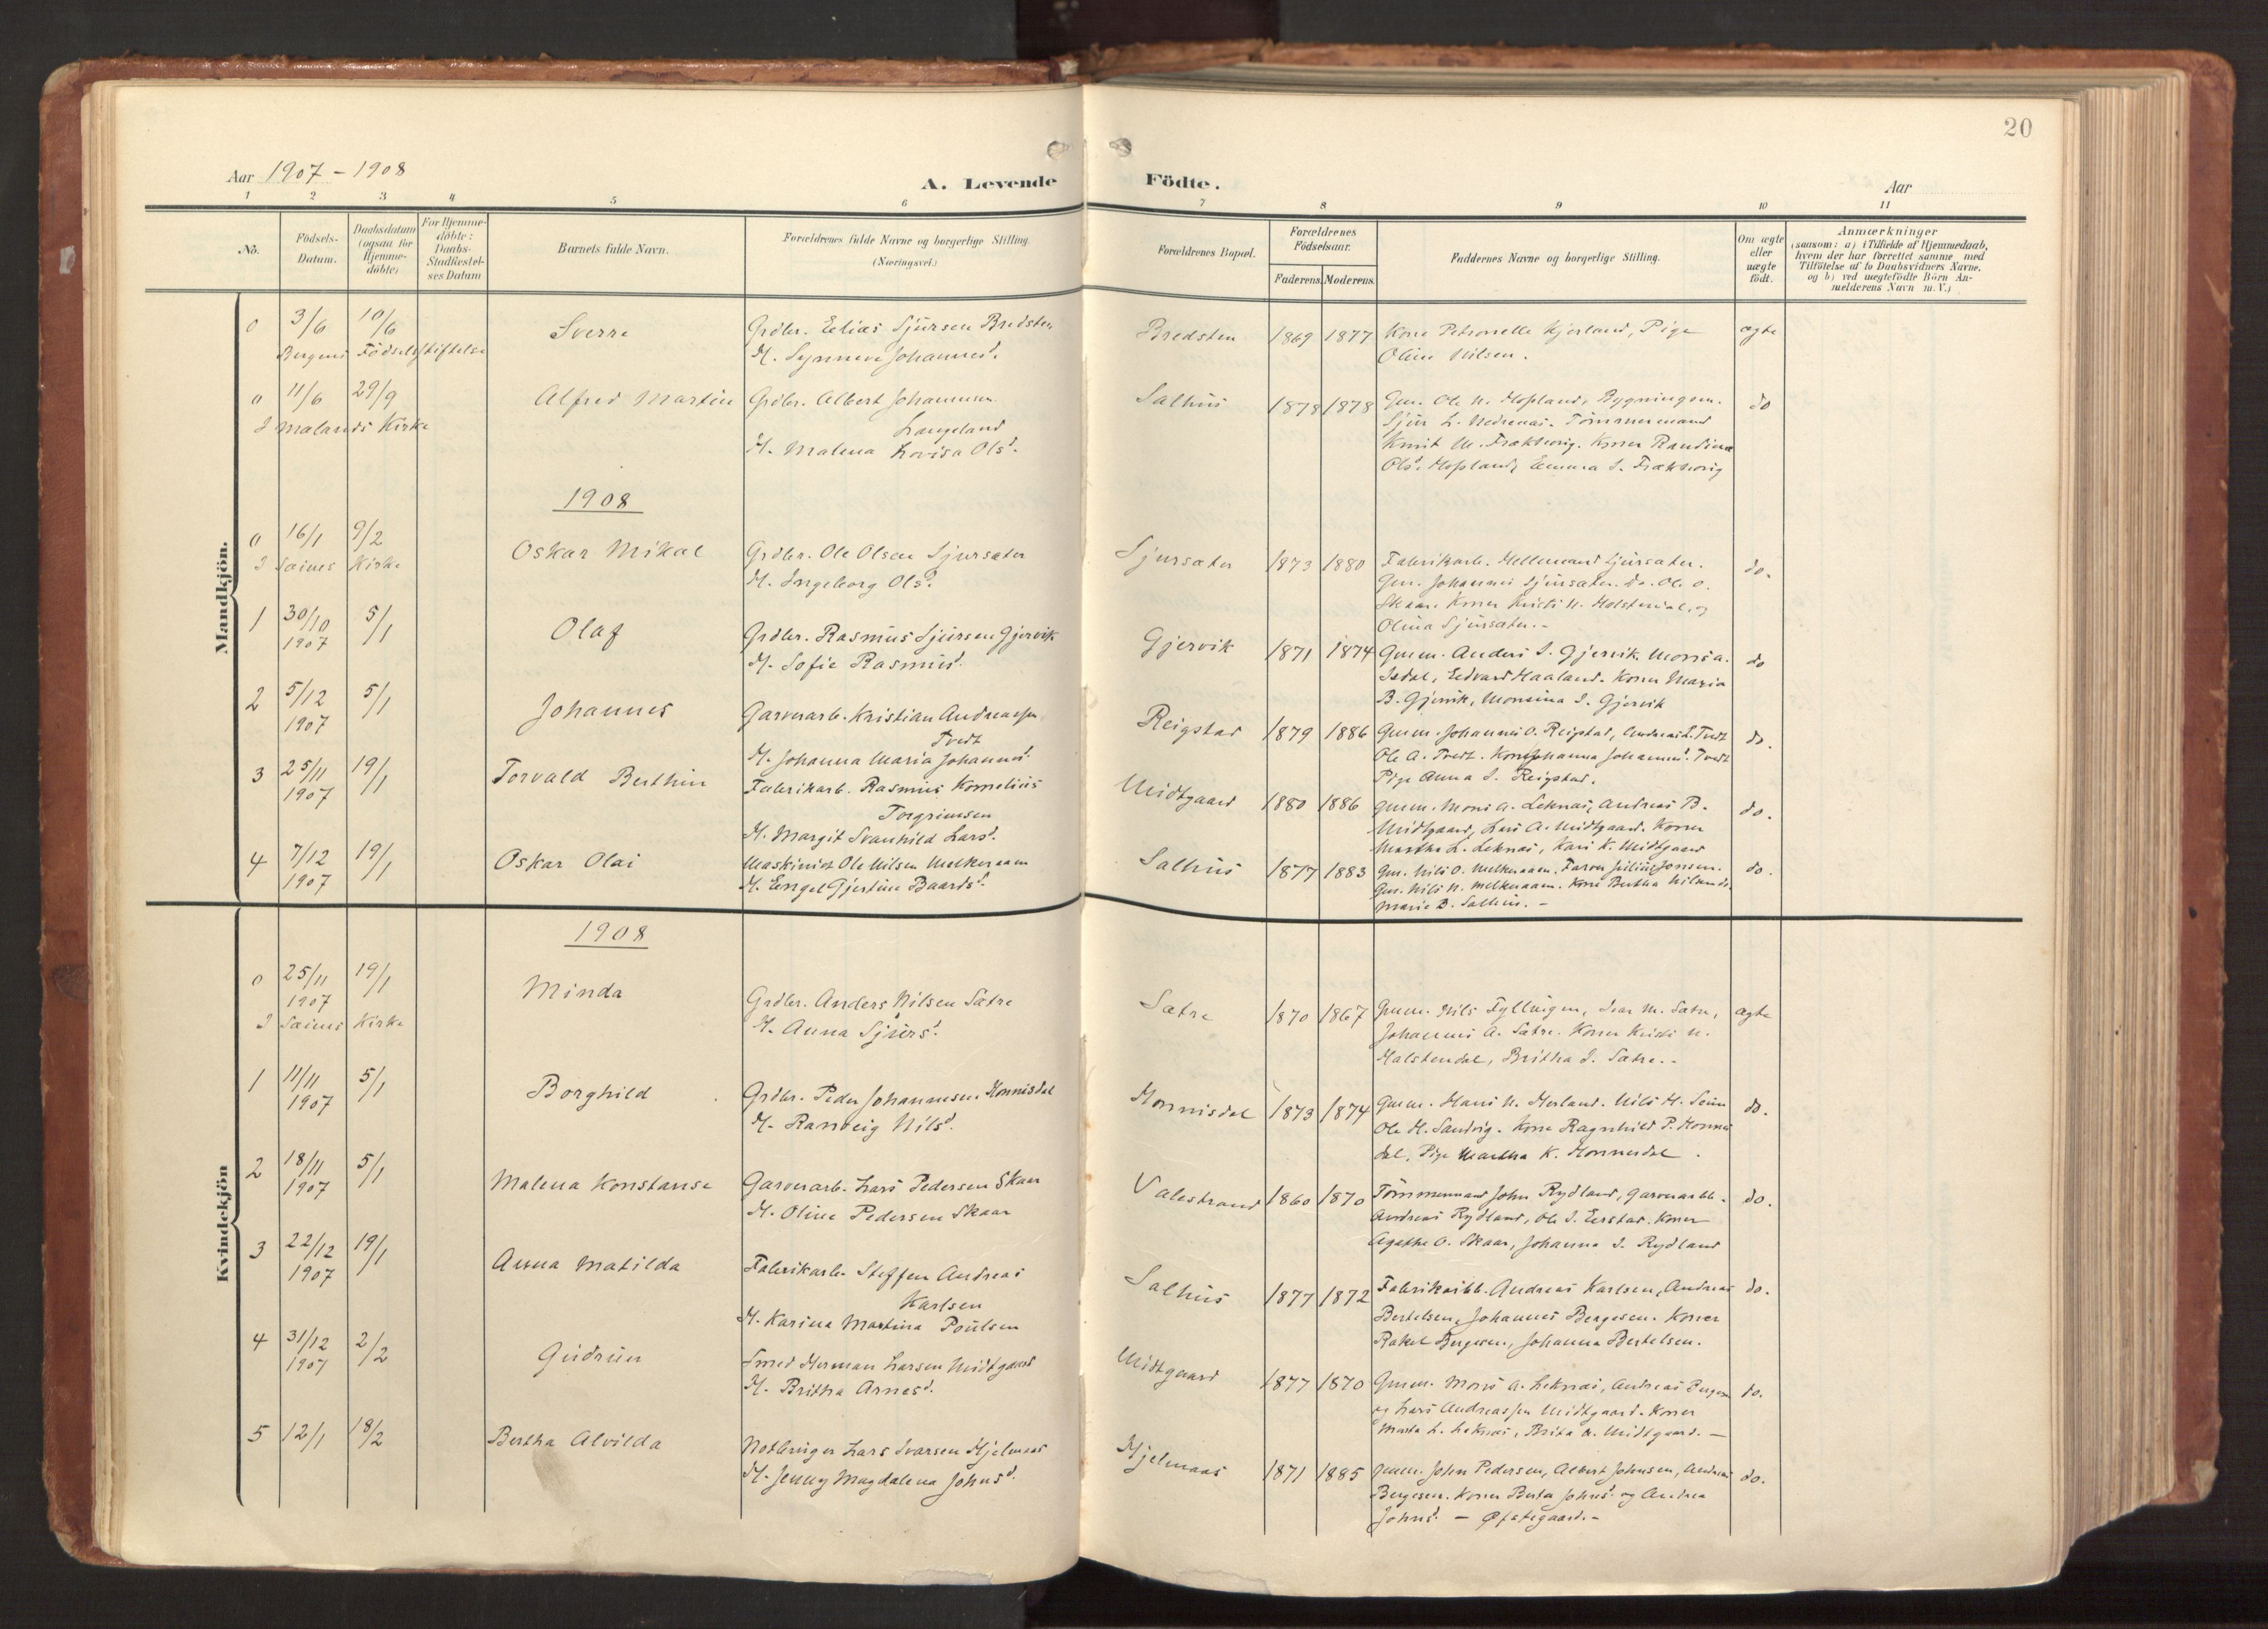 20
Aar 1907 - 1908
A. Levende Födte.
Aar
1 2 3 4 5 6 7 8 9 10 11
No.
Födsels-Datum.
Daabsdatum (ogsaa for Hjemme-döbte)
For Hjemme-döbte: Daabs-Stadfæstel-ses Datum
Barnets fulde Navn.
Forældrenes fulde Navne og borgerlige Stilling. (Næringsvei.)
Forældrenes Bopæl.
Forældrenes Födselsaar.
Faderens. Moderens.
Faddernes Navne og borgerlige Stilling.
Om ægte eller uægte födt.
Anmærkninger
(saasom: a) i Tilfælde af Hjemmedaab,
hvem der har forrettet samme med
Tilföielse af to Daabsvidners Navne.
og b) ved uægtefödte Börn An-
melderens Navn m. V.)
Mandkjön.
0 3/6 10/6 Sverre Grdbr. Elias Sjursen Bredsten Bredsten 1869 1877 Kone Petronelle Kjerland, Pige ægte
Bergens Födselsstiftelse H. Synneve Johannesd. Oline Nilsen.
0 11/6 29/9 Alfred Martin Grdbr. Albert Johannesen Salhus 1878 1878 Gm. Ole N. Hopland, Bygningsm. do
I Mælands Kirke Langeland Sjur L. Nedrenæs. Tömmermand
H. Malena Lovisa Olsd. Knut M. Frekhaug. Koner Randina
Olsd. Hopland, Emma S. Frekhaug
1908
0 16/1 9/2 Oskar Mikal Grdbr. Ole Olsen Sjursæter Sjursæter 1873 1880 Fabrikarb. Mellemand Sjursæter. do.
I Seims Kirke H. Ingeborg Olsd. Gm. Johannes Sjursæter. do. Ole O.
Skaar. Koner Kristi N. Halstendal. og
Olina Sjursæter.-
1 30/10 1907 5/1 Olaf Grdbr. Rasmus Sjursen Gjervik Gjervik 1871 1874 Gmm. Anders S. Gjervik. Mons A. do
H. Sofie Rasmusd. Isdal, Edvard Haaland. Koner Maria
B. Gjervik, Monsina S. Gjervik
2 5/12 1907 5/1 Johannes Garverarb. Kristian Andreassen Reigstad 1879 1886 Gmm. Johannes O. Reigstad, Andreas L. Tvedt do.
Tvedt Ole A. Tvedt. Kone Johanna Johannesd. Tvedt
H. Johanna Maria Johannesd. Pige Anna S. Reigstad.
3 25/11 1907 19/1 Torvald Berthin Fabrikarb. Rasmus Kornelius Midtgaard 1880 1886 Gmm. Mons A. Leknæs, Andreas B. do.
Torgrimsen Midtgaard, Lars A. Midtgaard. Koner
H. Margit Svanhild Larsd. Martha L. Leknæs, Kari K. Midtgaard
4 7/12 1907 19/1 Oskar Olai Maskinist Ole Nilsen Melkeraaen Salhus 1877 1883 Gm. Nils O. Melkeraaen. Farver Julius Jensen. do.
H. Engel Gjertine Baardsd. Gm. Nils N. Melkeraaen. Kone Bertha Nilsen do.
Marie B. Salhus. -
Kvindekjön
1908
0 25/11 1907 19/1 Minda Grdbr. Anders Nilsen Sætre Sætre 1870 1867 Gmm. Nils Fyllingen, Ivar M. Sætre, ægte
I Seims Kirke H. Anna Sjursd. Johannes A. Sætre. Koner Kristi N.
Halstendal, Britha I. Sætre.-
1 11/11 1907 5/1 Borghild Grdbr. Peder Johannesen Honnisdal Honnisdal 1873 1874 Gmm. Hans N. Herland. Nils H. Seim do.
H. Ranveig Nilsd. Ole H. Sandvig. Kone Ragnhild P. Honnis
dal, Pige Martha K. Honnesdal.
2 18/11 1907 5/1 Malena Konstanse Garverarb. Lars Pedersen Skaar Valestrand 1860 1870 Tömmermand John Rydland, Garverarbb. do.
H. Oline Pedersen Skaar Andreas Rydland, Ole S. Erstad. Koner
Agathe O. Skaar, Johanna S. Rydland
3 22/12 1907 19/1 Anna Matilda Fabrikarb. Steffen Andreas Salhus 1877 1872 Fabrikarbb. Andreas Karlsen, Andreas do.
Karlsen Bertelsen, Johannes Bergesen. Koner
H. Karina Martina Poulsen Rakel Bergesen, Johanna Bertelsen.
4 31/12 1907 2/2 Gudrun Smed Herman Larsen Midtgaard Midtgaard 1877 1870 Gmm. Mons A. Leknæs, Andreas Bergesen do.
H. Britha Arnesd. og Lars Andreassen Midtgaard. Koner
Marta L. Leknæs, Brita A. Midtgaard. -
5 12/1 18/2 Bertha Alvilda Notbruger Lars Ivarsen Hjelmaas Hjelmaas 1871 1885 Gmm. John Pedersen, Albert Johnsen, Andreas do.
H. Jenny Magdalena Johnsd. Bergesen. Koner Berta Johnsd. og Andrea
Johnsd. - Øfstegaard.-